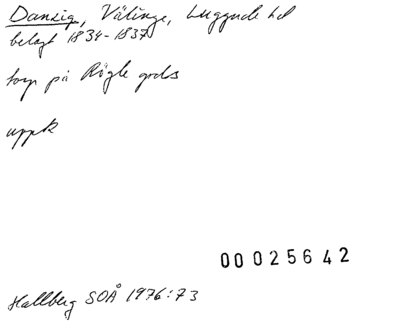 Danzig, Välinge, Luggude hd
belagt 1834-1837
torp på Rögle gods
uppk
00025642
Hallberg SOÅ 1976:73